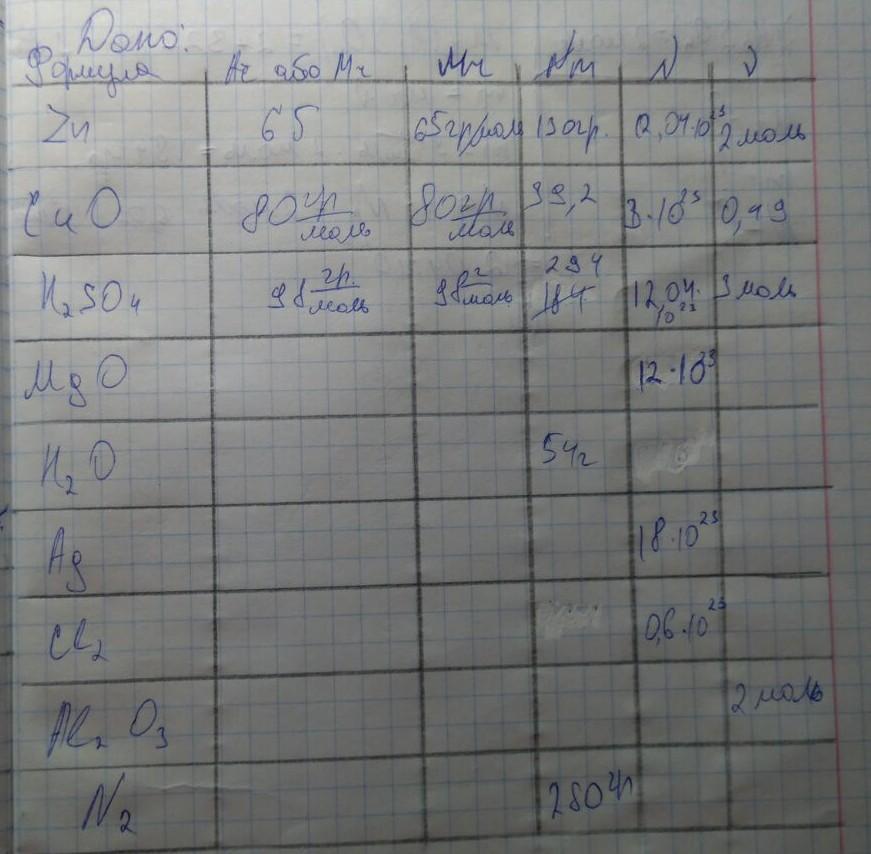 Дано:
Формула Ar або Mr Mr m N ν
Zn 65 65гр/моль 130гр. 12,04·10²³ 2 моль
CuO 80 гр/моль 80 гр/моль 39,2 3·10²³ 0,49
H₂SO₄ 98 гр./моль 98 г/моль 294 12,04·10²³ 3 моль
MgO 12·10²³
H₂O 54г
Ag 18·10²³
Cl₂ 0,6·10²³
Al₂O₃ 2 моль
N₂ 280гр